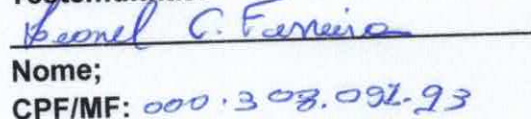 Leonel C. Ferreira
Nome;
CPF/MF: 000.308.091-93